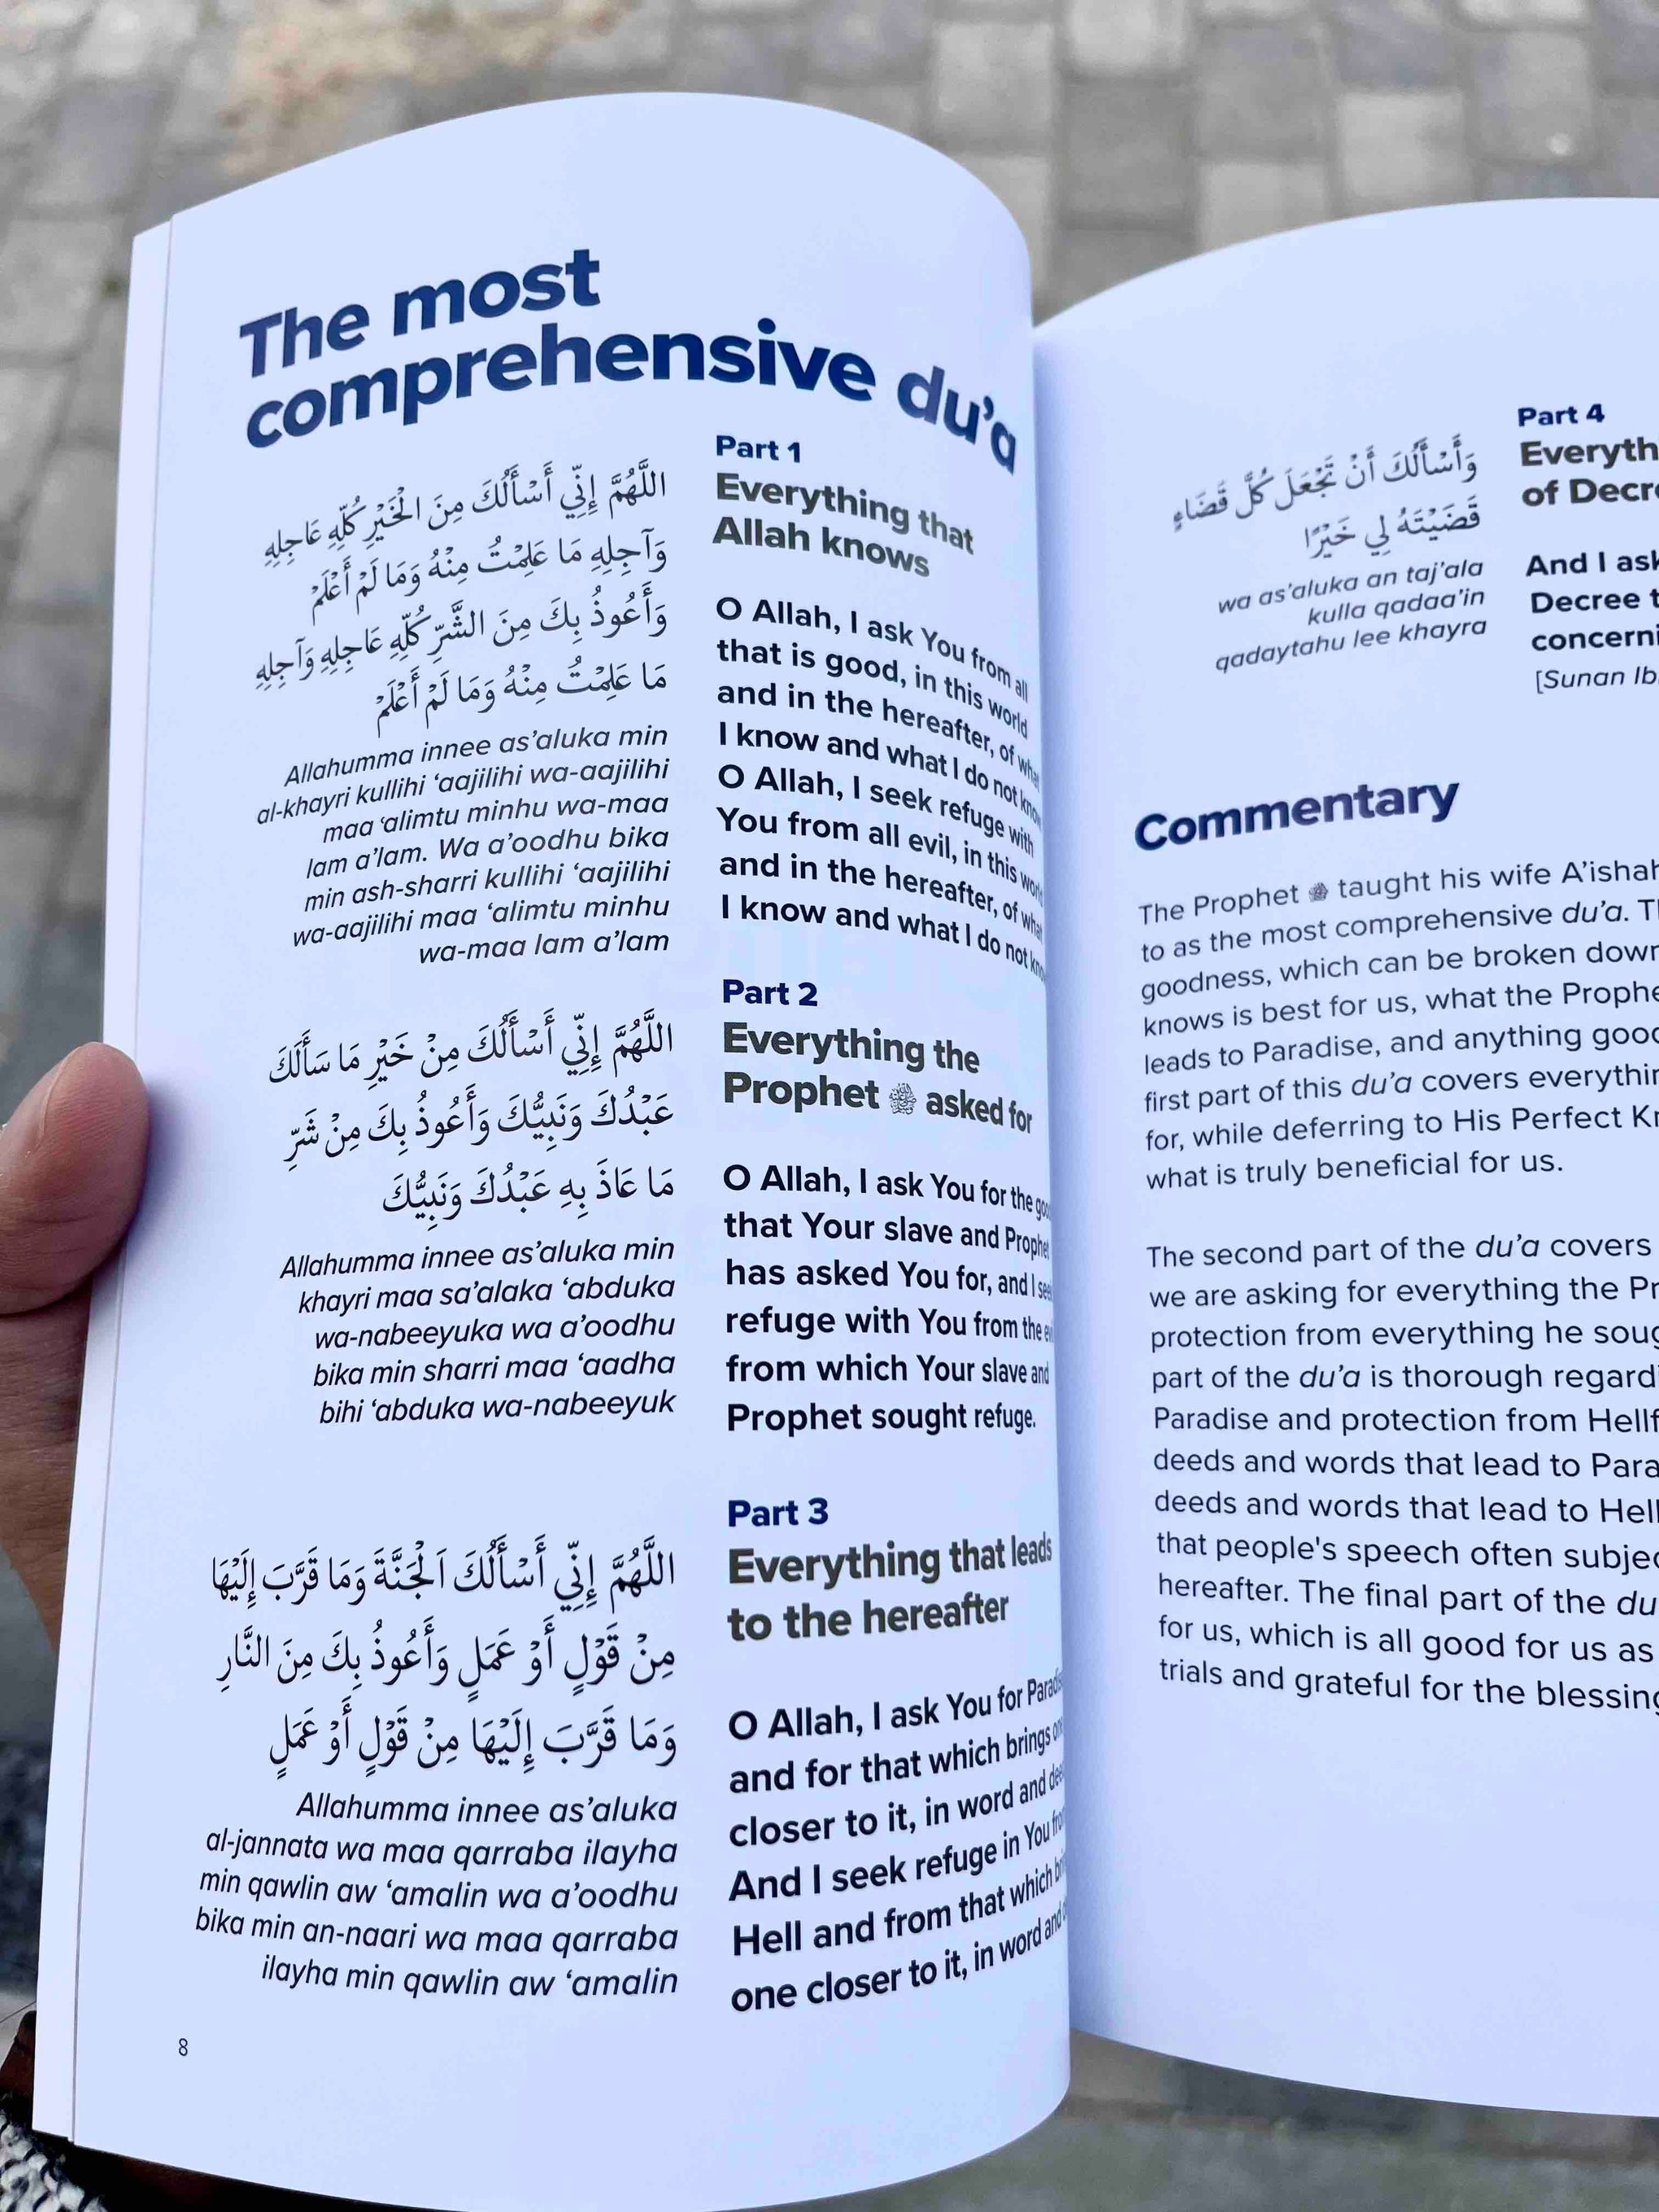 The most
comprehensive du'a
اللَّهُمَّ إِنِّي أَسْأَلُكَ مِنَ الْخَيْرِ كُلِّهِ عَاجِلِهِ
وَآجِلِهِ مَا عَلِمْتُ مِنْهُ وَمَا لَمْ أَعْلَمْ
وَأَعُوذُ بِكَ مِنَ الشَّرِّ كُلِّهِ عَاجِلِهِ وَآجِلِهِ
مَا عَلِمْتُ مِنْهُ وَمَا لَمْ أَعْلَمْ
Allahumma innee as'aluka min
al-khayri kullihi 'aajilihi wa-aajilihi
maa 'alimtu minhu wa-maa
lam a'lam. Wa a'oodhu bika
min ash-sharri kullihi 'aajilihi
wa-aajilihi maa 'alimtu minhu
wa-maa lam a'lam
Part 1
Everything that
Allah knows
O Allah, I ask You from all
that is good, in this world
and in the hereafter, of what
I know and what I do not
O Allah, I seek refuge with
You from all evil, in this
and in the hereafter, of what
I know and what I do not
اللَّهُمَّ إِنِّي أَسْأَلُكَ مِنْ خَيْرِ مَا سَأَلَكَ
عَبْدُكَ وَنَبِيُّكَ وَأَعُوذُ بِكَ مِنْ شَرِّ
مَا عَاذَ بِهِ عَبْدُكَ وَنَبِيُّكَ
Allahumma innee as'aluka min
khayri maa sa'alaka 'abduka
wa-nabeeyuka wa a'oodhu
bika min sharri maa 'aadha
bihi 'abduka wa-nabeeyuk
Part 2
Everything the
Prophet ﷺ asked for
O Allah, I ask You for the
that Your slave and Prophet
has asked You for, and I
refuge with You from the
from which Your slave and
Prophet sought refuge.
اللَّهُمَّ إِنِّي أَسْأَلُكَ اَلْجَنَّةَ وَمَا قَرَّبَ إِلَيْهَا
مِنْ قَوْلٍ أَوْ عَمَلٍ وَأَعُوذُ بِكَ مِنَ النَّارِ
وَمَا قَرَّبَ إِلَيْهَا مِنْ قَوْلٍ أَوْ عَمَلٍ
Allahumma innee as'aluka
al-jannata wa maa qarraba ilayha
min qawlin aw 'amalin wa a'oodhu
bika min an-naari wa maa qarraba
ilayha min qawlin aw 'amalin
Part 3
Everything that leads
to the hereafter
O Allah, I ask You for
and for that which brings
closer to it, in word and
And I seek refuge in You
Hell and from that which
one closer to it, in word and
8
وَأَسْأَلُكَ أَنْ تَجْعَلَ كُلَّ قَضَاءٍ
قَضَيْتَهُ لِي خَيْرًا
wa as'aluka an taj'ala
kulla qadaa'in
qadaytahu lee khayra
Part 4
of
And I
Decree
[Sunan
Commentary
The Prophet ﷺ taught his wife A'ishah
to as the most comprehensive du'a.
goodness, which can be broken down
knows is best for us, what the
leads to Paradise, and anything
first part of this du'a covers
for, while deferring to His Perfect
what is truly beneficial for us.
The second part of the du'a covers
we are asking for everything the
protection from everything he
part of the du'a is thorough
Paradise and protection from
deeds and words that lead to
deeds and words that lead to
that people's speech often
hereafter. The final part of the
for us, which is all good for us as
trials and grateful for the